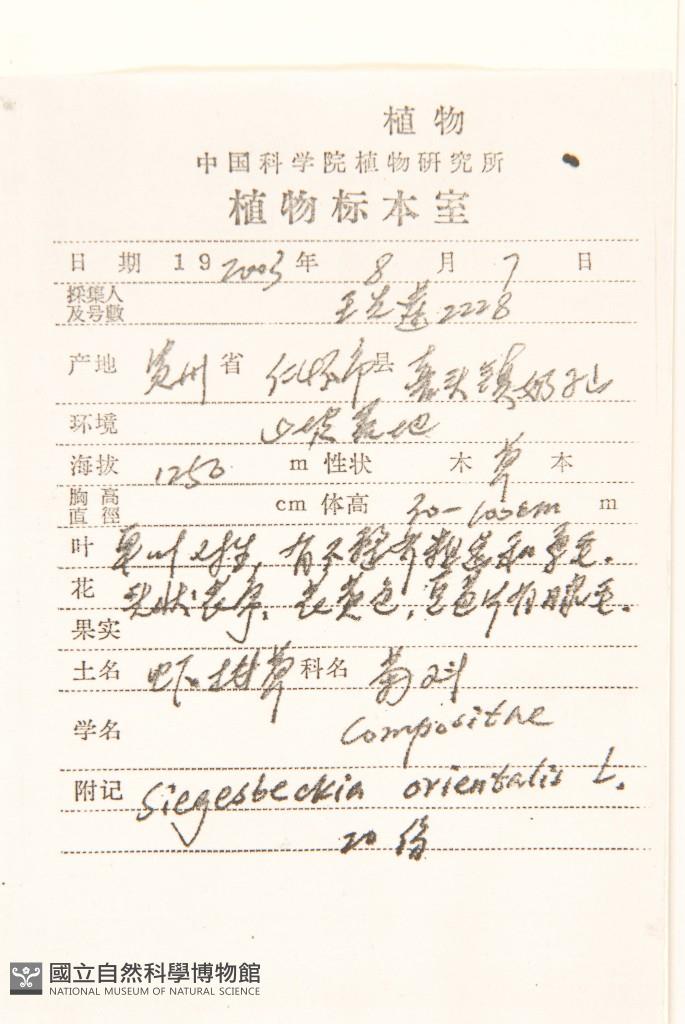 植物
中国科学院植物研究所
植物标本室
日期 19 2003 年 8 月 7 日
採集人
及号數 王光 2228
产地 贵州 省 仁怀市 县
环境 山坡 地
海拔 1250 m 性状 木 草 本
胸高
直徑 cm 体高 30-100cm m
叶 单叶对生, 有不整齐粗 和 毛.
花 头状花序, 花黄色, 有腺毛.
果实
土名 虾 草 科名 菊科
学名 Compositae
附记 Siegesbeckia orientalis L.
20份
國立自然科學博物館
NATIONAL MUSEUM OF NATURAL SCIENCE